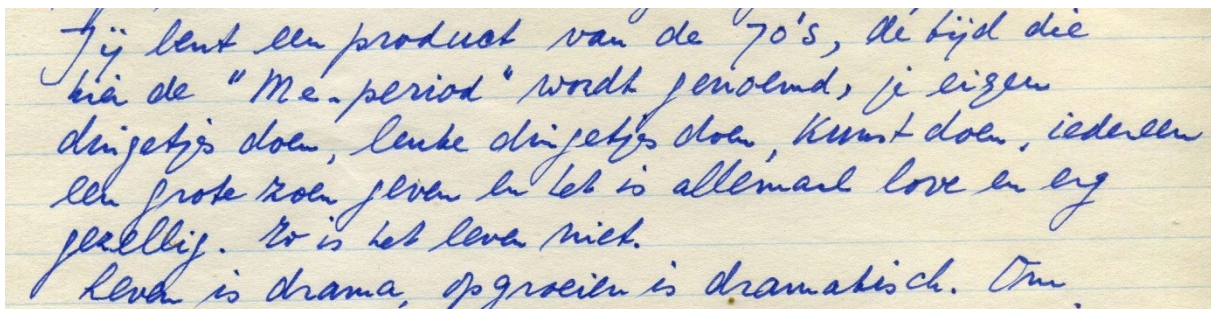 Jij bent een product van de 70's, de tijd die
hier de "Me-period" wordt genoemd, je eigen
dingetjes doen, leuke dingetjes doen, Kunst doen, iedereen
een grote zoen geven en het is allemaal love en erg
gezellig. Zo is het leven niet.
Leven is drama, opgroeien is dramatisch. Om